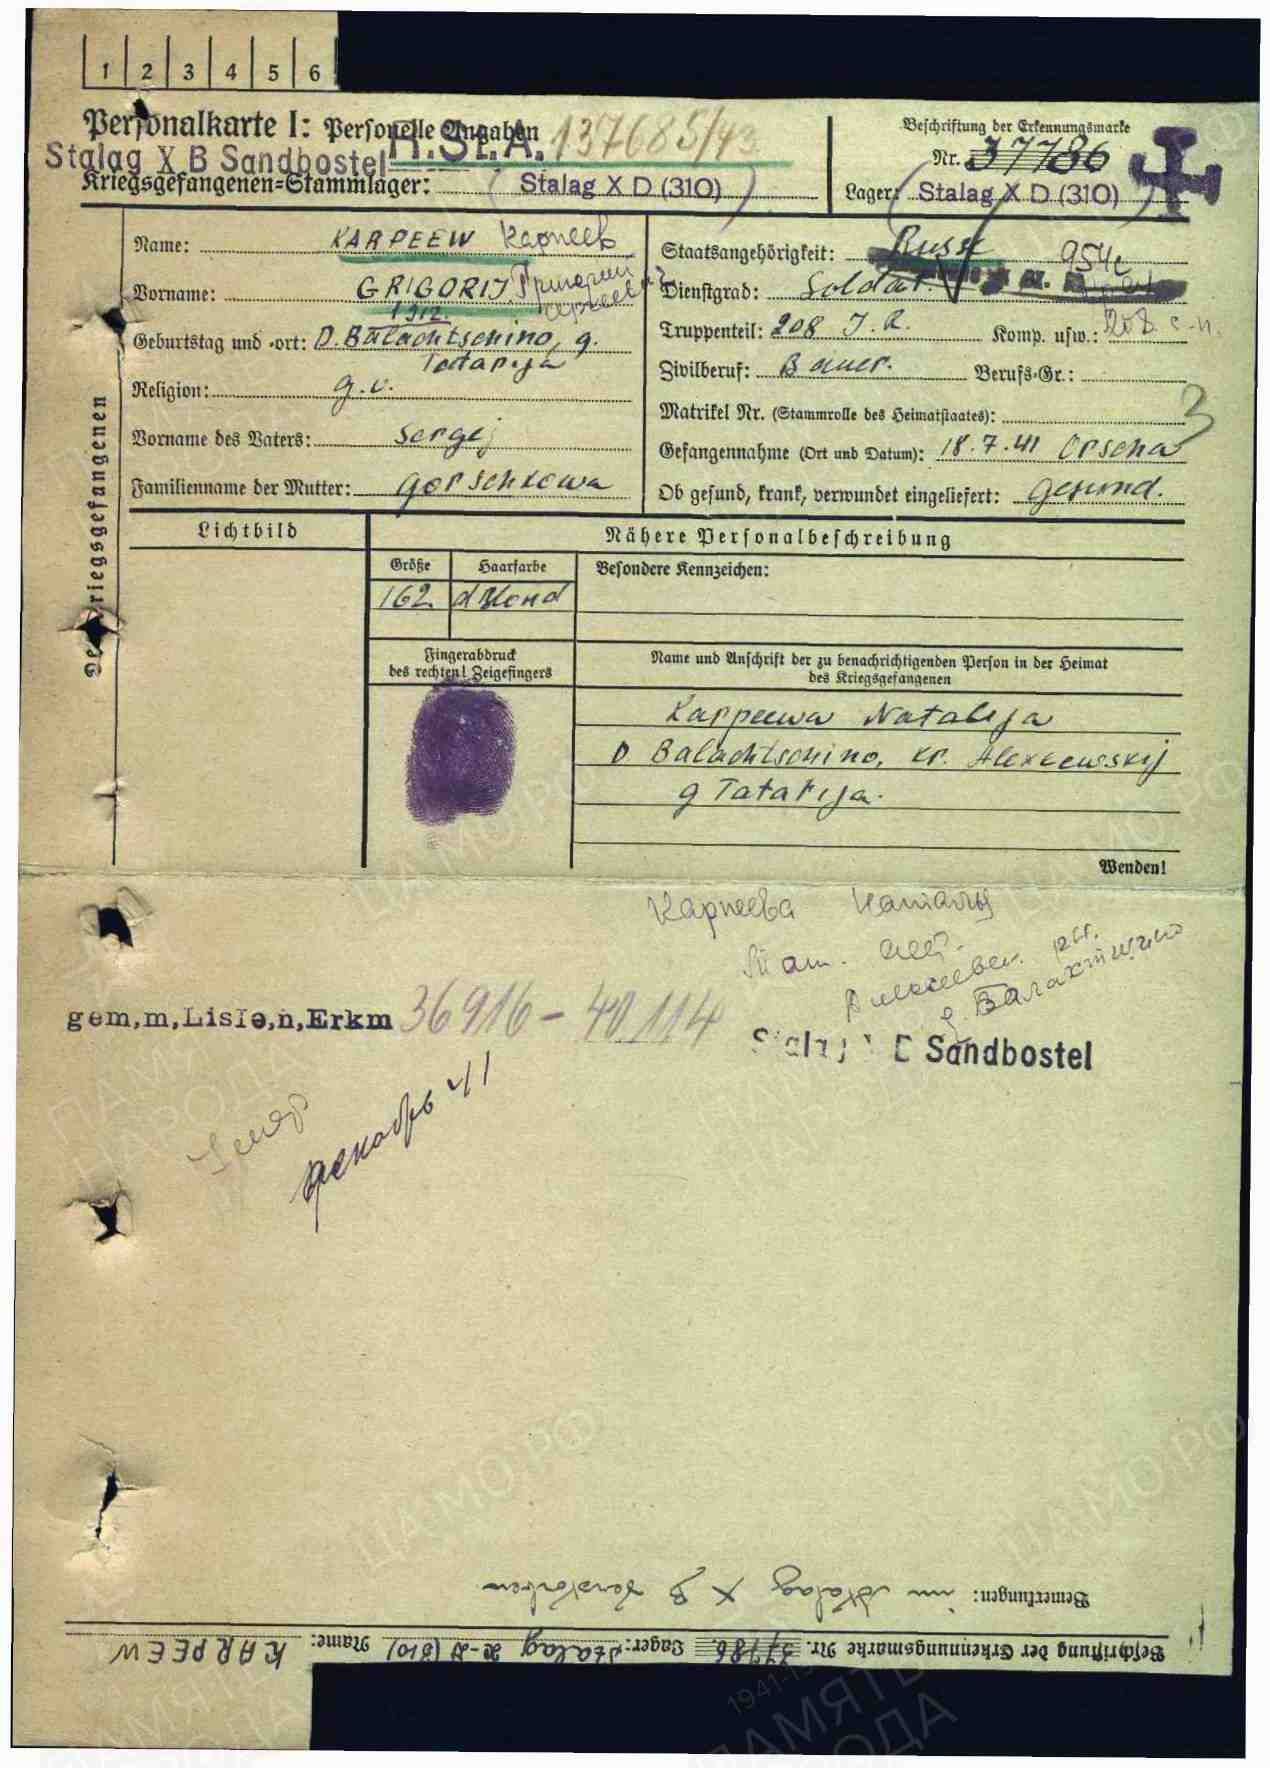 1 2 3 4 5 6
Personalkarte I: Personelle Angaben
R.St.A. 137685/43
Stalag X B Sandbostel
Kriegsgefangenen=Stammlager: (Stalag X D (310))
Beschriftung der Erkennungsmarke
Nr. 37786
Lager: (Stalag X D (310))
Des Kriegsgefangenen
Name: KARPEEW Карпеев
Vorname: GRIGORIJ Григорий
Сергеевич
1912.
Geburtstag und -ort: D. Balachtschino, g.
Tatarija
Religion: g.v.
Vorname des Vaters: Sergej
Familienname der Mutter: Gorschkowa
Staatsangehörigkeit: Russe
Dienstgrad: Soldat
Truppenteil: 208 J.R. Komp. usw.: 208 с.п.
Zivilberuf: Bauer. Berufs-Gr.:
Matrikel Nr. (Stammrolle des Heimatstaates):
3
Gefangennahme (Ort und Datum): 18.7.41 Orscha
Ob gesund, krank, verwundet eingeliefert: Gesund.
Lichtbild
Nähere Personalbeschreibung
Größe Haarfarbe Besondere Kennzeichen:
162. d Blond
Fingerabdruck
des rechten! Zeigefingers
Name und Anschrift der zu benachrichtigenden Person in der Heimat
des Kriegsgefangenen
Karpeewa Natalija
D Balachtschino, kr. Alexeewskij
g Tatarija.
Wenden!
Карпеева Наталья
Тат.
д. Балахтчино
gem,m,Lisle,n,Erkm 36916 - 40114
Sandbostel
Умер
декабрь 41
Bemerkungen: im Stalag X B verstorben
Beschriftung der Erkennungsmarke Nr. 37786 Lager: Stalag X-D (310) Name: KARPEEW